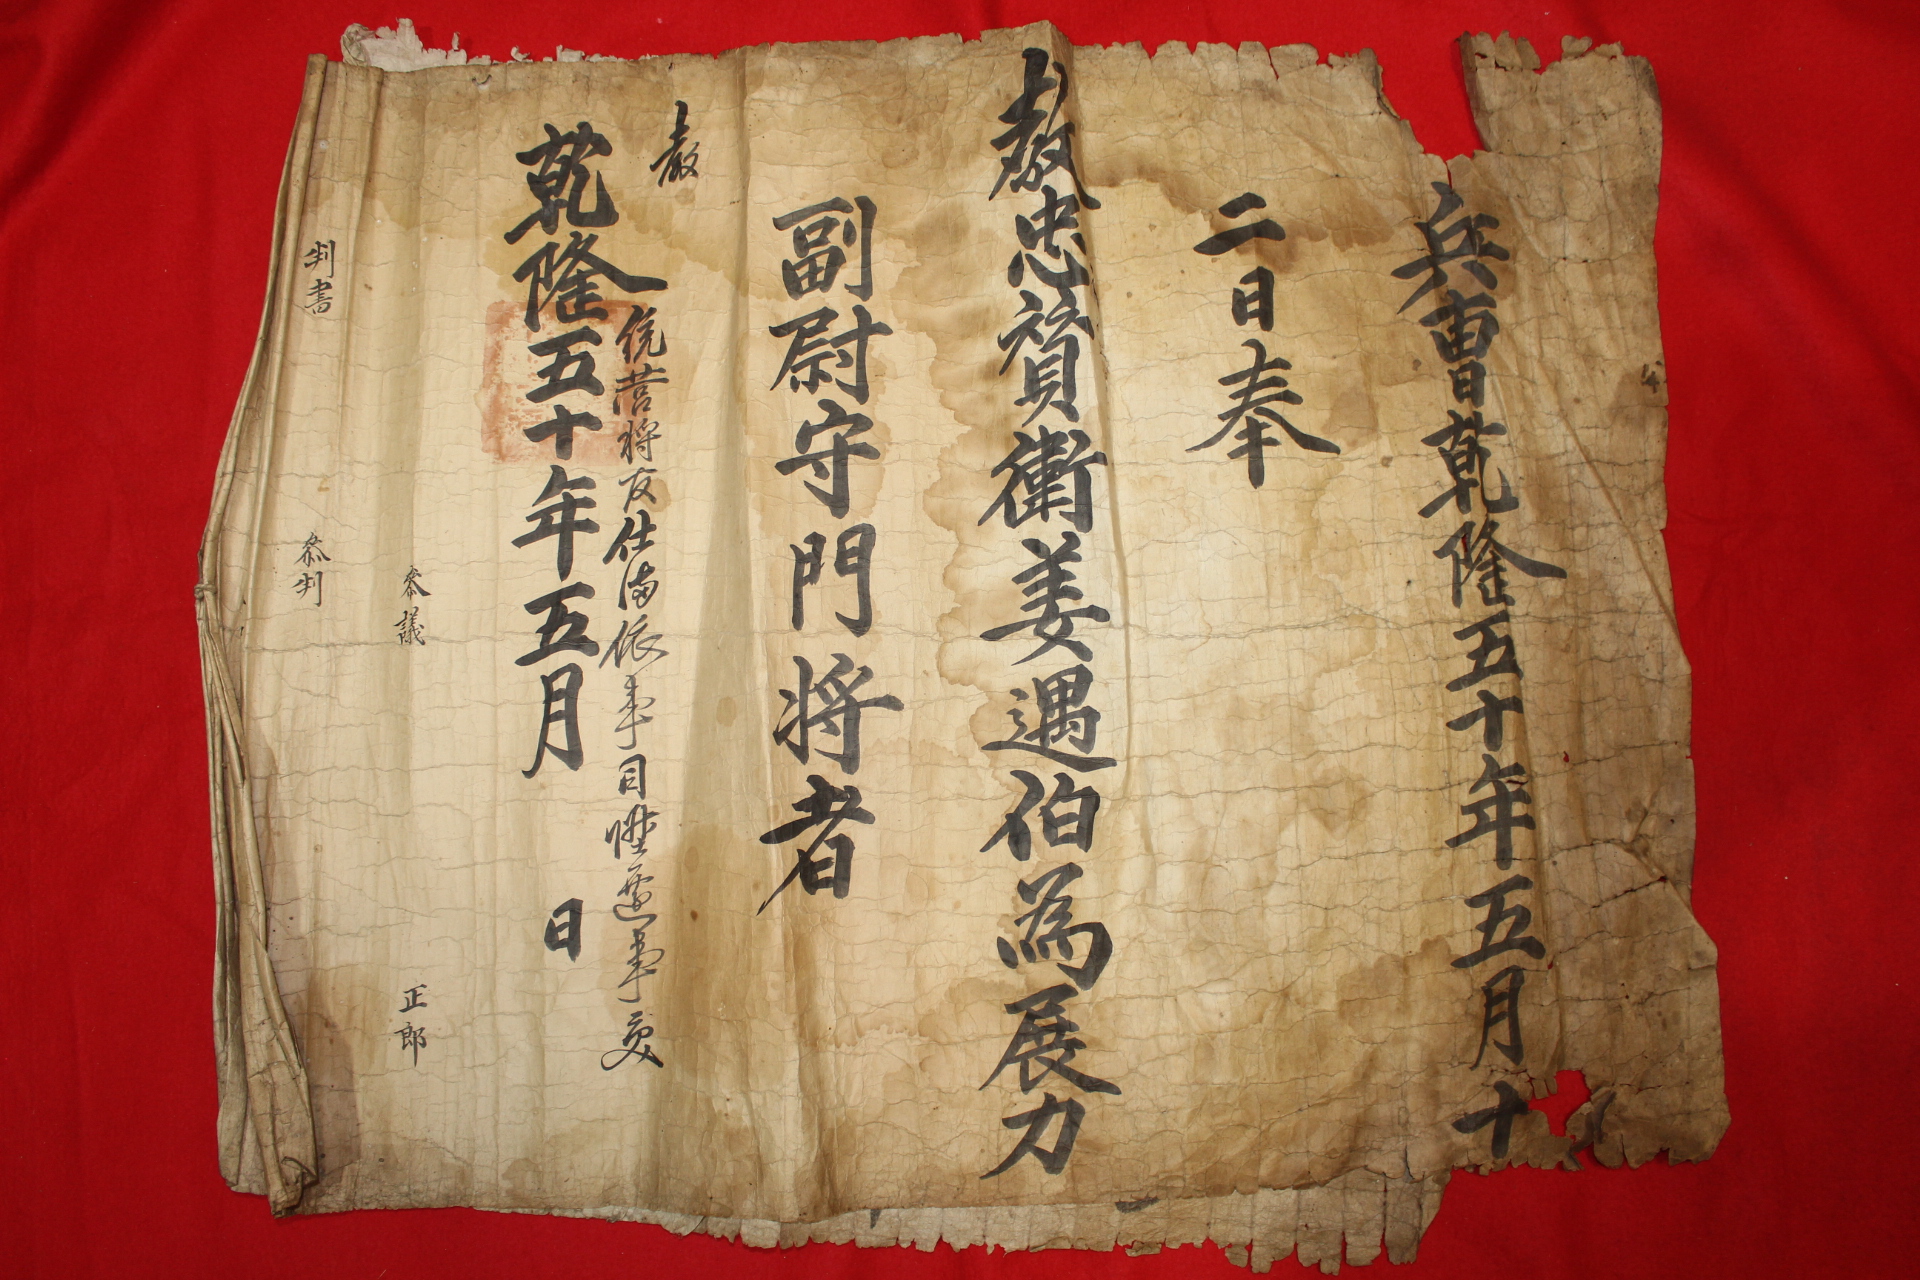 兵曹乾隆五十年五月十
二日奉
教忠贊衛姜遇伯為展力
副尉守門將者
教
統營將 仕滿依事目陞遷事受
乾隆五十年五月 日
參議 正郎
判書 參判